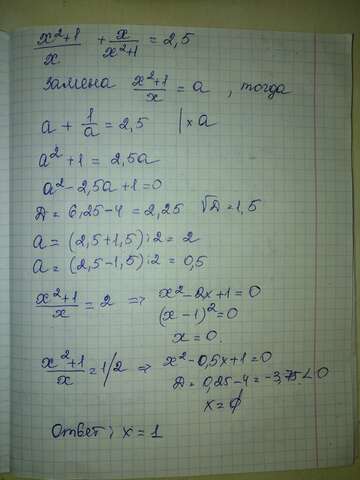 (x²+1)/x + x/(x²+1) = 2,5
Замена (x²+1)/x = a , тогда
a + 1/a = 2,5 | × a
a² + 1 = 2,5a
a² - 2,5a + 1 = 0
Д = 6,25 - 4 = 2,25 √Д = 1,5
a = (2,5+1,5):2 = 2
a = (2,5-1,5):2 = 0,5
(x²+1)/x = 2 ⇒ x² - 2x + 1 = 0
(x-1)² = 0
x = 0.
(x²+1)/x = 1/2 ⇒ x² - 0,5x + 1 = 0
Д = 0,25 - 4 = -3,75 < 0
x = ∅
Ответ: x = 1